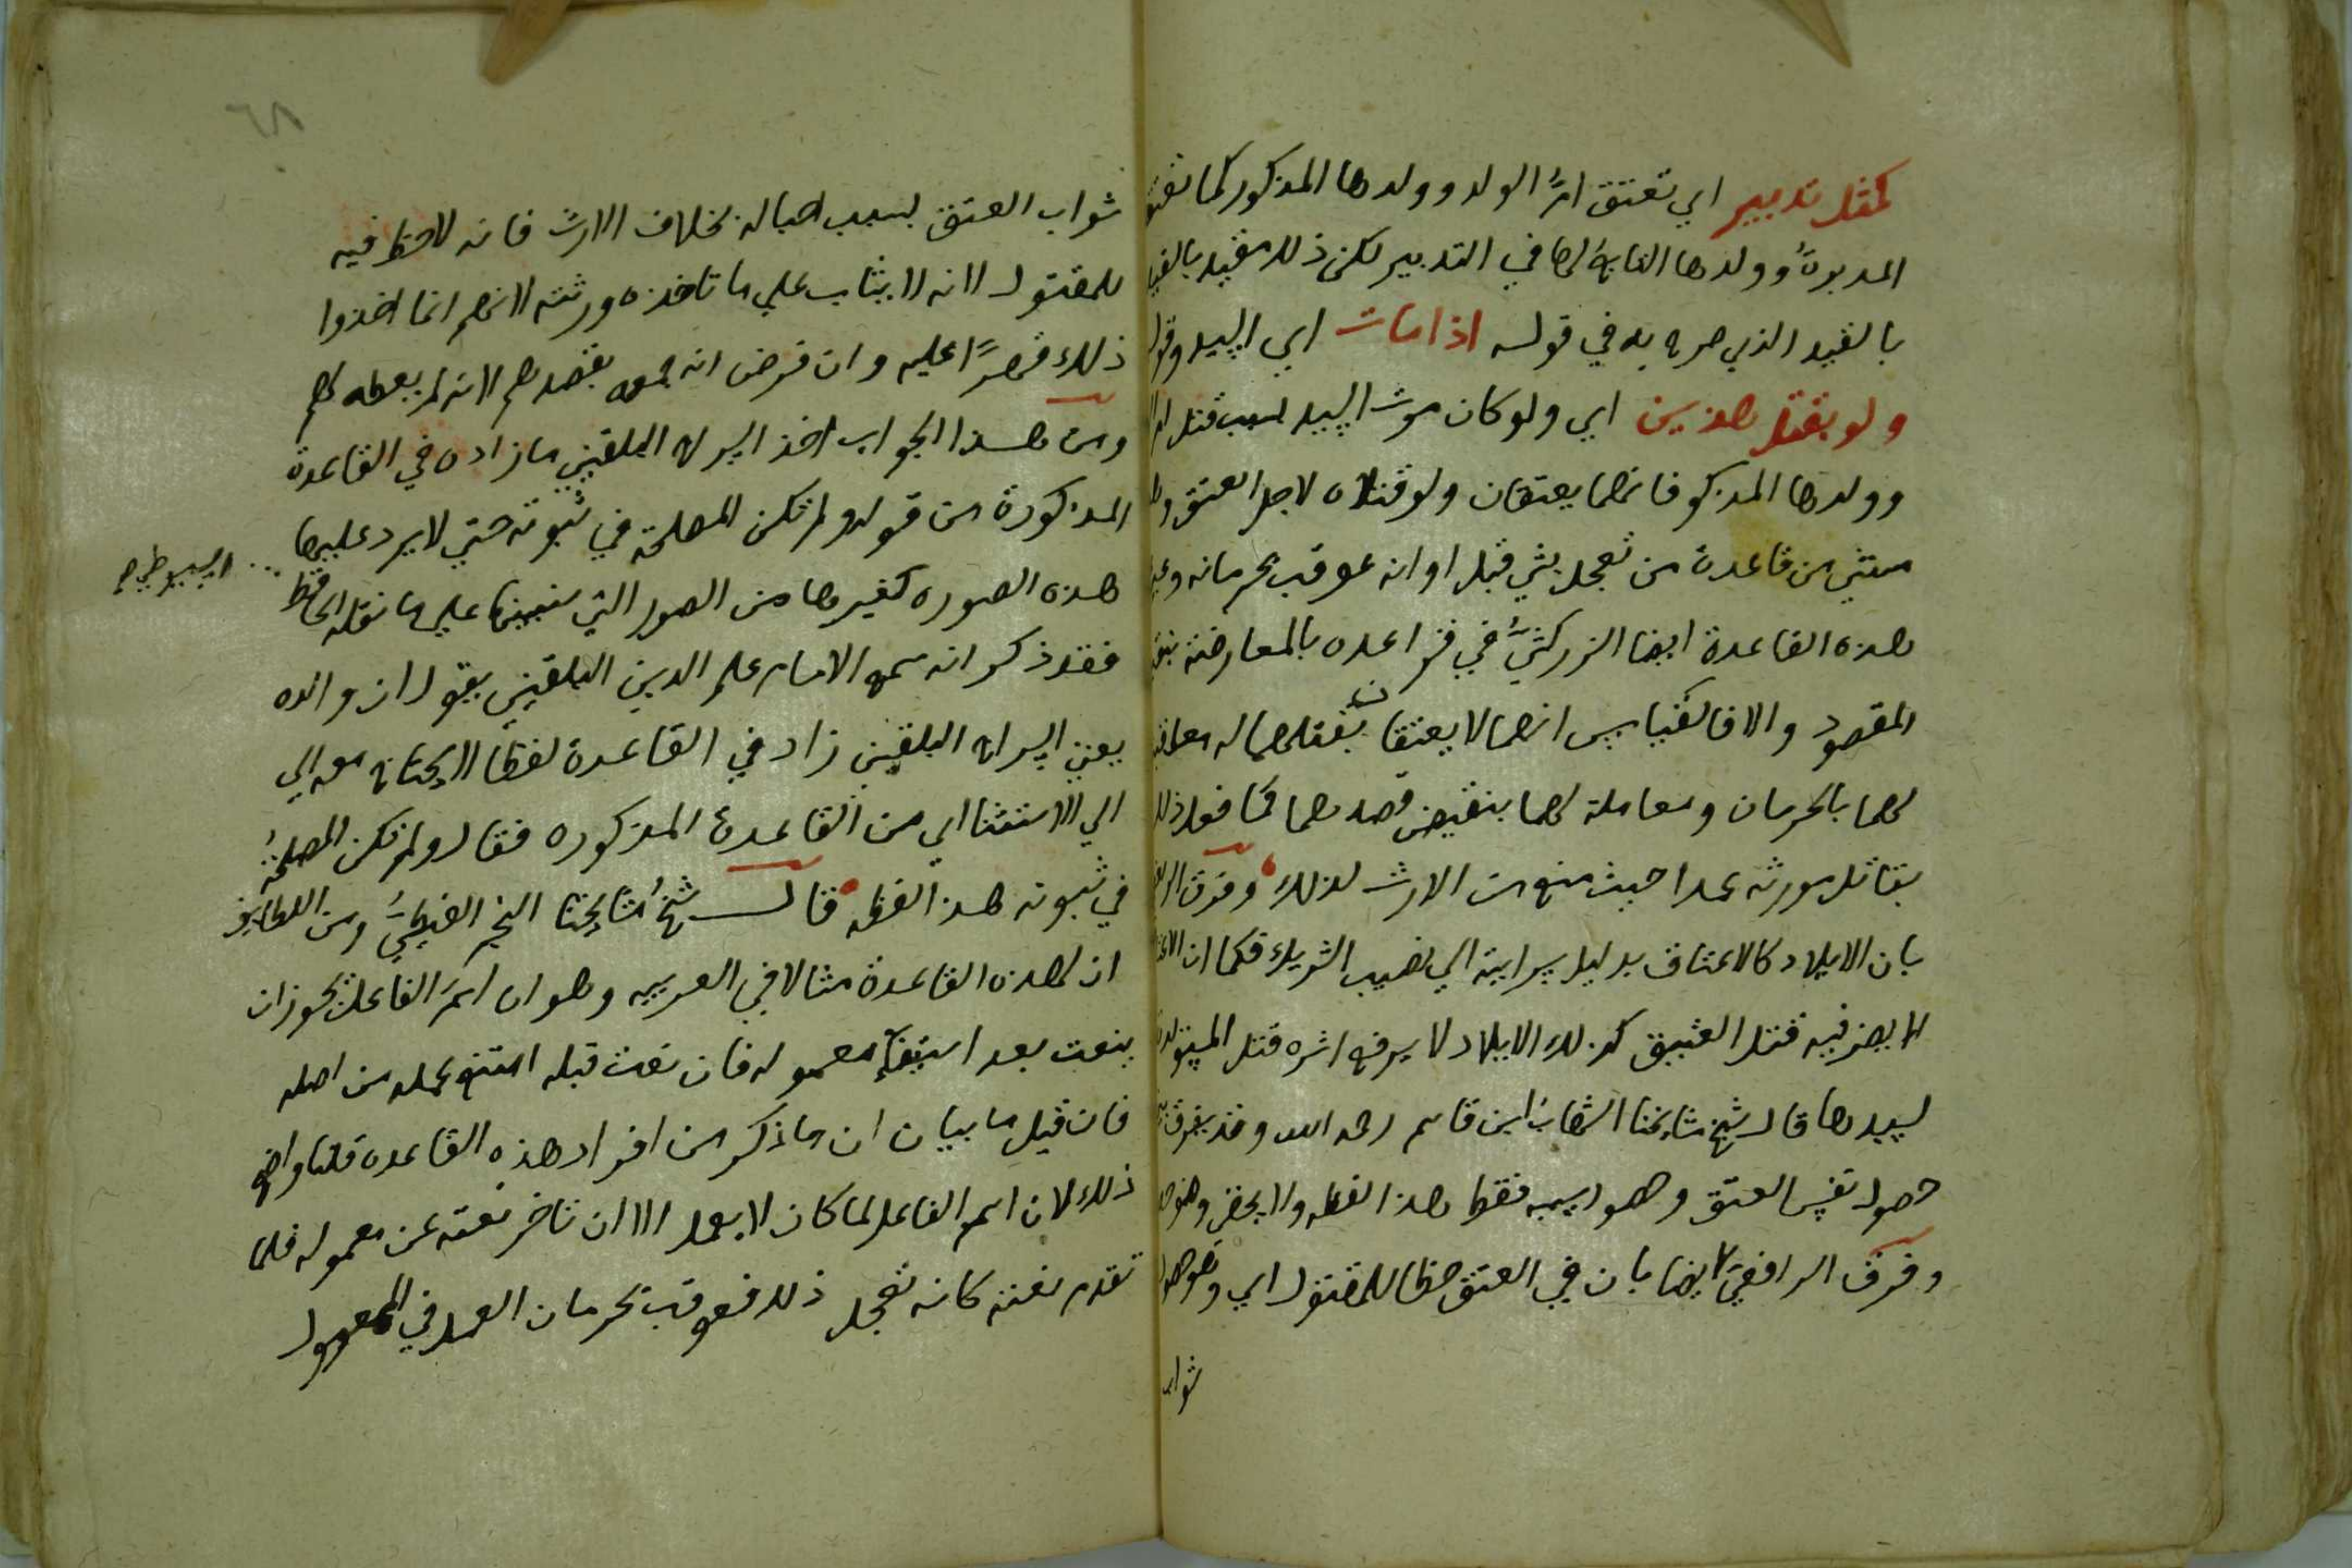 كمثل تدبير اي تعتق امُّ الولد وولدها المذكور كما تعتق
المدبرةُ وولدها التابعُ لها في التدبير لكن ذلك مقيد
بالقيد الذي صرح به في قوله اذا مات اي السيد وقوله
ولو بقتل هذين اي ولو كان موت السيد بسبب قتل
وولدها المذكو فانهما يعتقان ولو قتلاه لاجل العتق
مستثني من قاعدة من تعجل بشي قبل اوانه عوقب بحرمانه
هذه القاعدة ايضا الزركشيُّ في قواعده بالمعارضة بنقيض
المقصود والا فالقياس انهما لا يعتقان بقتلهما له معاقبة
لهما بالحرمان ومعاملة لهما بنقيض قصدهما كما فعل ذلك
بقاتل مورثه عمدا حيث منع من الارث لذلك وفرق
بان الايلاد كالاعتاق بدليل سرايته الي نصيب الشريك فكما ان
لا يضر فيه قتل العتيق كذلك الايلاد لا يرفع اثره قتل
لسيدها قال شيخ مشايخنا الشهاب ابن قاسم رحمه الله وقد يفرق
حصول نفس العتق وهو اسبب فقط هذا لفظه ولا يخفى
وفرق الرافعيّ ايضا بان في العتق حظا للمقتول اي وهو حصول
ثواب
٦٨
ثواب العتق بسبب احباله بخلاف الارث فانه لا حظ فيه
للمقتول لانه لا يثاب علي ما تاخذه ورثته لانهم انما اخذوا
ذلك قهرًا عليه وان فرض انه جمعه بقصدهم لانه لم يعطه لهم
ومن هذا الجواب اخذ السراج البلقيني ما زاده في القاعدة
المذكورة من قوله ولم تكن المصلحة في ثبوته حتي لا يرد عليها
هذه الصوره كغيرها من الصور التي سنبينها علي ما نقله الحافظ
السيوطي
فقد ذكر انه سمع الامام علم الدين البلقيني يقول ان والده
يعني السراج البلقيني زاد في القاعدة لفظا لا يحتاج معه الي
الي الاستثنا اي من القاعدة المذكوره فقال ولم تكن المصلحةُ
في ثبوته هذا لفظه قال شيخ مشايخنا النجم الغيطيُّ ومن اللطايف
ان لهذه القاعدة مثالا في العربيه وهو ان اسم الفاعل يجوز ان
ينعت بعد استيفآء معموله فان نعت قبله امتنع عمله من اصله
فان قيل ما بيان ان ما ذكر من افراد هذه القاعدة قلنا واضح
ذلك لان اسم الفاعل لما كان لا يعمل الا ان تاخر نعته عن معموله فلما
تقدم نعته كانه تعجل ذلك فعوقب بحرمان العمل في المعمول